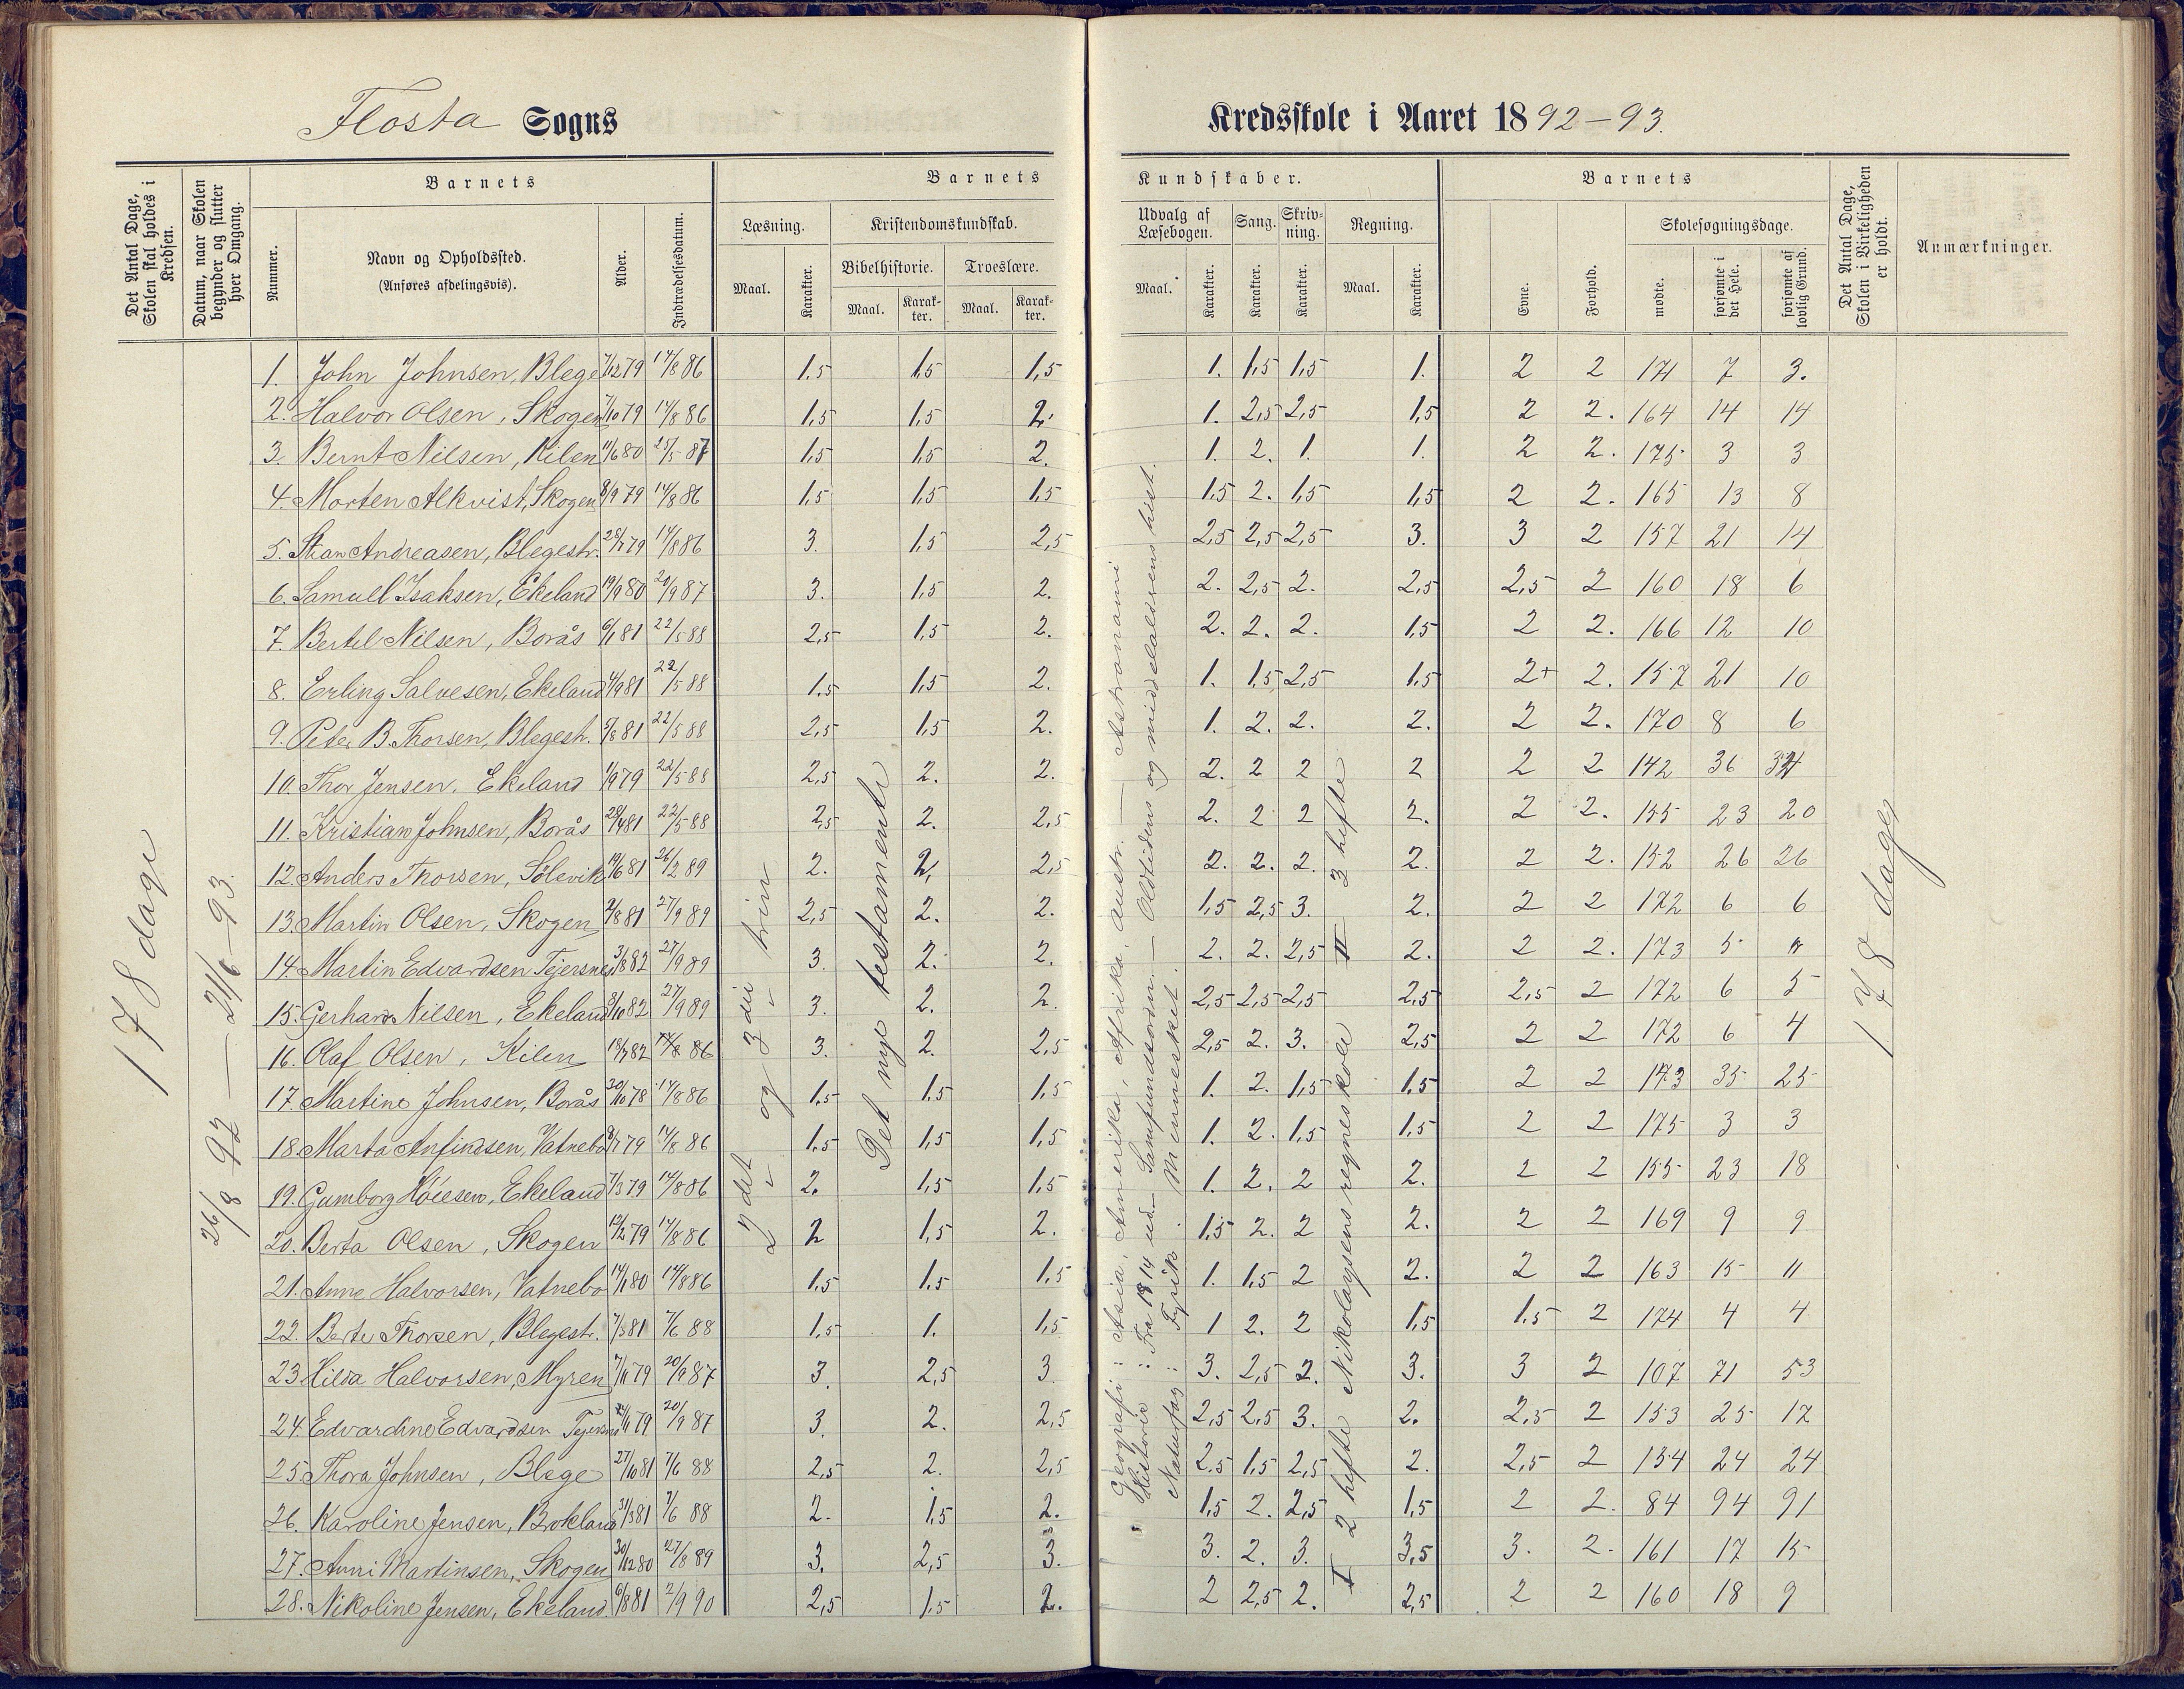 Flosta Sogns
Kredsskole i Aaret 1892-93.
Det Antal Dage, Skolen skal holdes i Kredsen.
Datum, naar Skolen begynder og slutter hver Omgang.
Barnets
Nummer.
Navn og Opholdssted.
(Anføres afdelingsvis).
Alder.
Indtrædelsesdatum.
Barnets
Læsning.
Maal.
Karakter.
Kristendomskundskab.
Bibelhistorie.
Maal.
Karakter.
Troeslære.
Maal.
Karakter.
Kundskaber.
Udvalg af Læsebogen.
Maal.
Karakter.
Sang.
Karakter.
Skrivning.
Karakter.
Regning.
Maal.
Karakter.
Barnets
Evne.
Forhold.
Skolesøgningsdage.
mødte.
forsømte i det Hele.
forsømte af lovlig Grund.
Det Antal Dage, Skolen i Virkeligheden er holdt.
Anmærkninger.
178 dage
26/8 92 — 21/6-93.
2det og 3die trin
Det nye testamente
Geografi: Asia, Amerika, Afrika, Austr. — Astronomi
Historie: Fra 1814 ud — Samfundsordn. — Oldtidens og middelalderens hist.
Naturfag: Fysik. Mennesket.
I 2 hefte Nikolaysens regneskole II 3 hefte
178 dage
1. John Johnsen, Blege 7/12 79 14/8 86 1,5 1,5 1,5 1. 1,5 1,5 1. 2 2 171 7 3.
2. Halvor Olsen, Skogen 7/10 79 14/8 86 1,5 1,5 2. 1. 2,5 2,5 1,5 2 2. 164 14 14
3. Bernt Nilsen, Kilen 11/6 80 25/5 87 1,5 1,5 2. 1. 2. 1. 1. 2 2. 175 3 3
4. Morten Alkvist, Skogen 8/9 79 14/8 86 1,5 1,5 1,5 1,5 2. 1,5 1,5 2 2. 165 13 8
5. Stian Andreasen, Blegestr. 28/7 79 14/8 86 3. 1,5 2,5 2,5 2,5 2,5 3. 3 2 157 21 14
6. Samuel Isaksen, Ekeland 19/9 80 20/9 87 3. 1,5 2. 2. 2,5 2. 2,5 2,5 2 160 18 6
7. Bertel Nilsen, Borås 6/1 81 22/5 88 2,5 1,5 2. 2. 2. 2. 1,5 2 2. 166 12 10
8. Erling Salvesen, Ekeland 4/9 81 22/5 88 1,5 1,5 2. 1. 1,5 2,5 1,5 2+ 2. 157 21 10
9. Peter B. Thorsen, Blegestr. 5/8 81 22/5 88 2,5 1,5 2. 1. 2. 2. 2. 2 2. 170 8 6
10. Thor Jensen, Ekeland 1/9 79 22/5 88 2,5 2. 2. 2. 2 2 2 2 2 142 36
11. Kristian Johnsen, Borås 28/4 81 22/5 88 2,5 2. 2,5 2. 2 2 2. 2 2. 155 23 20
12. Anders Thorsen, Sølevik 19/6 81 26/2 89 2. 2. 2,5 2. 2. 2. 2. 2 2. 152 26 26
13. Martin Olsen, Skogen 2/8 81 27/9 89 2,5 2. 2. 1,5 2,5 3. 2. 2 2 172 6 6
14. Martin Edvardsen Tejersnes 3/8 82 27/9 89 3. 2. 2. 2. 2. 2,5 2. 2 2. 173 5
15. Gerhard Nilsen, Ekeland 3/10 82 27/9 89 3. 2. 2. 2,5 2,5 2,5 2,5 2,5 2 172 6 5
16. Olaf Olsen, Kilen 18/7 82 14/8 86 3. 2. 2,5 2,5 2. 3. 2,5 2 2 172 6 4
17. Martine Johnsen, Borås 30/10 78 14/8 86 1,5 1,5 1,5 1. 2. 1,5 1,5 2 2 143 35 25
18. Marta Anfindsen, Vatnebo 9/7 79 14/8 86 1,5 1,5 1,5 1. 2. 1,5 1,5 2 2 175 3 3
19. Gumborg Höiesen, Ekeland 7/3 79 14/8 86 2. 1,5 1,5 1. 2. 2 2. 2 2 155 23 18
20. Berta Olsen, Skogen 12/2 79 14/8 86 2 1,5 2. 1,5 2. 2 2. 2 2 169 9 9
21. Anne Halvorsen, Vatnebo 14/1 80 14/8 86 1,5 1,5 1,5 1. 1,5 2 2. 2 2 163 15 11
22. Berte Thorsen, Blegestr. 7/3 81 7/6 88 1,5 1. 1,5 1 2. 2 1,5 1,5 2 174 4 4
23. Hilda Halvorsen, Myren 7/11 79 20/9 87 3. 2,5 3. 3. 2,5 2. 3. 3 2 107 71 53
24. Edvardine Edvardsen Tejersnes 79 20/9 87 3. 2. 2,5 2,5 2,5 3. 2. 2,5 2 153 25 17
25. Thora Johnsen, Blege 27/10 81 7/6 88 2,5 2. 2,5 2,5 1,5 2,5 2. 2,5 2 154 24 24
26. Karoline Jensen, Brokland 31/3 81 7/6 88 2. 1,5 2. 1,5 2. 2,5 1,5 2 2. 84 94 91
27. Anni Martinsen, Skogen 30/12 80 27/8 89 3. 2,5 3. 3. 2. 3. 3,5 3. 2. 161 17 15
28. Nikoline Jensen, Ekeland 6/8 81 2/9 90 2,5 1,5 2. 2 2,5 2. 2,5 2 2 160 18 9